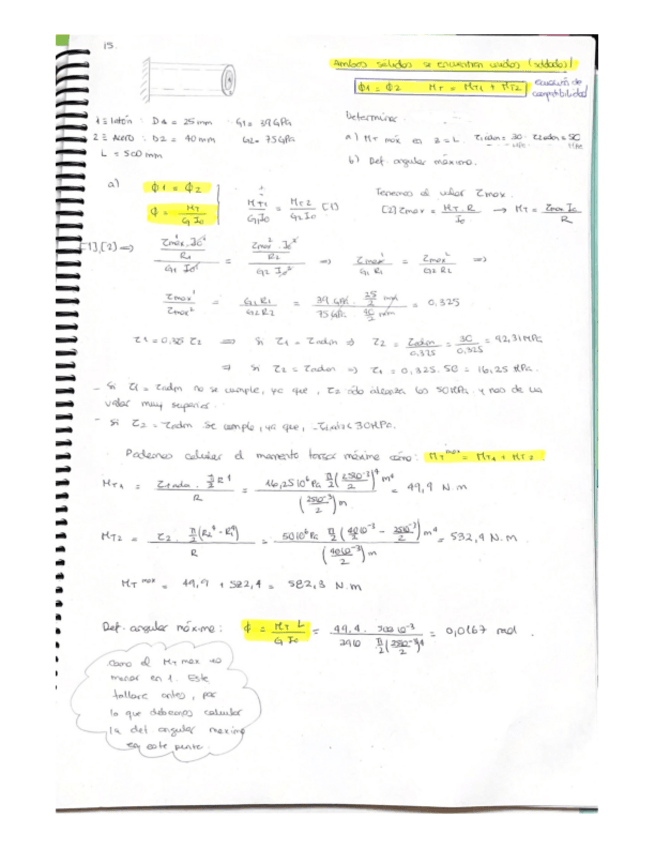 15.
Ambos sólidos se encuentran unidos (soldado)!
ϕ1 = ϕ2 MT = MT1 + MT2 ecuación de compatibilidad
1 ≡ latón : D1 = 25 mm G1 = 39 GPa
2 ≡ Acero : D2 = 40 mm G2 = 75 GPa
L = 500 mm
Determinar
a) MT máx en z = L. τlatón = 30 τacero = 50
b) Def. angular máxima.
a) ϕ1 = ϕ2
ϕ = MT / G I0
MT1 / G1 I0 = MT2 / G2 I0 [1]
Tenemos el valor τmax.
[2] τmax = MT · R / I0 → MT = τmax I0 / R
[1],[2] ⇒ (τmax¹ · I0¹ / R1) / (G1 I0¹) = (τmax² · I0² / R2) / (G2 I0²) ⇒ τmax¹ / G1 R1 = τmax² / G2 R2 ⇒
τmax¹ / τmax² = G1 R1 / G2 R2 = (39 GPa · 25/2 mm) / (75 GPa · 40/2 mm) = 0,325
τ1 = 0,325 τ2 ⇒ si τ1 = τadm ⇒ τ2 = τadm / 0,325 = 30 / 0,325 = 92,31 MPa
⇒ si τ2 = τadm ⇒ τ1 = 0,325 · 50 = 16,25 MPa.
- Si τ1 = τadm no se cumple, ya que, τ2 sólo alcanza los 50 MPa y nos da un
valor muy superior.
- Si τ2 = τadm se cumple, ya que, τ1 < 30 MPa.
Podemos calcular el momento torsor máximo como: MT max = MT1 + MT2
MT1 = τ1adm · π/2 R⁴ / R = 16,25 10⁶ Pa π/2 (25 10⁻³ / 2)⁴ m⁴ / (25 10⁻³ / 2) m = 49,9 N.m
MT2 = τ2 · π/2 (R2⁴ - R1⁴) / R = 50 10⁶ Pa π/2 (40 10⁻³ / 2 - 25 10⁻³ / 2) m⁴ / (40 10⁻³ / 2) m = 532,4 N.m
MT max = 49,9 + 532,4 = 582,3 N.m
Def. angular máxima: ϕ = MT L / G I0 = 49,9 · 500 10⁻³ / 39 10 π/2 (25 10⁻³ / 2)⁴ = 0,0167 rad.
Como el MT max es
menor en 1. Este
fallará antes, por
lo que debemos calcular
la def angular maxima
en este punto.